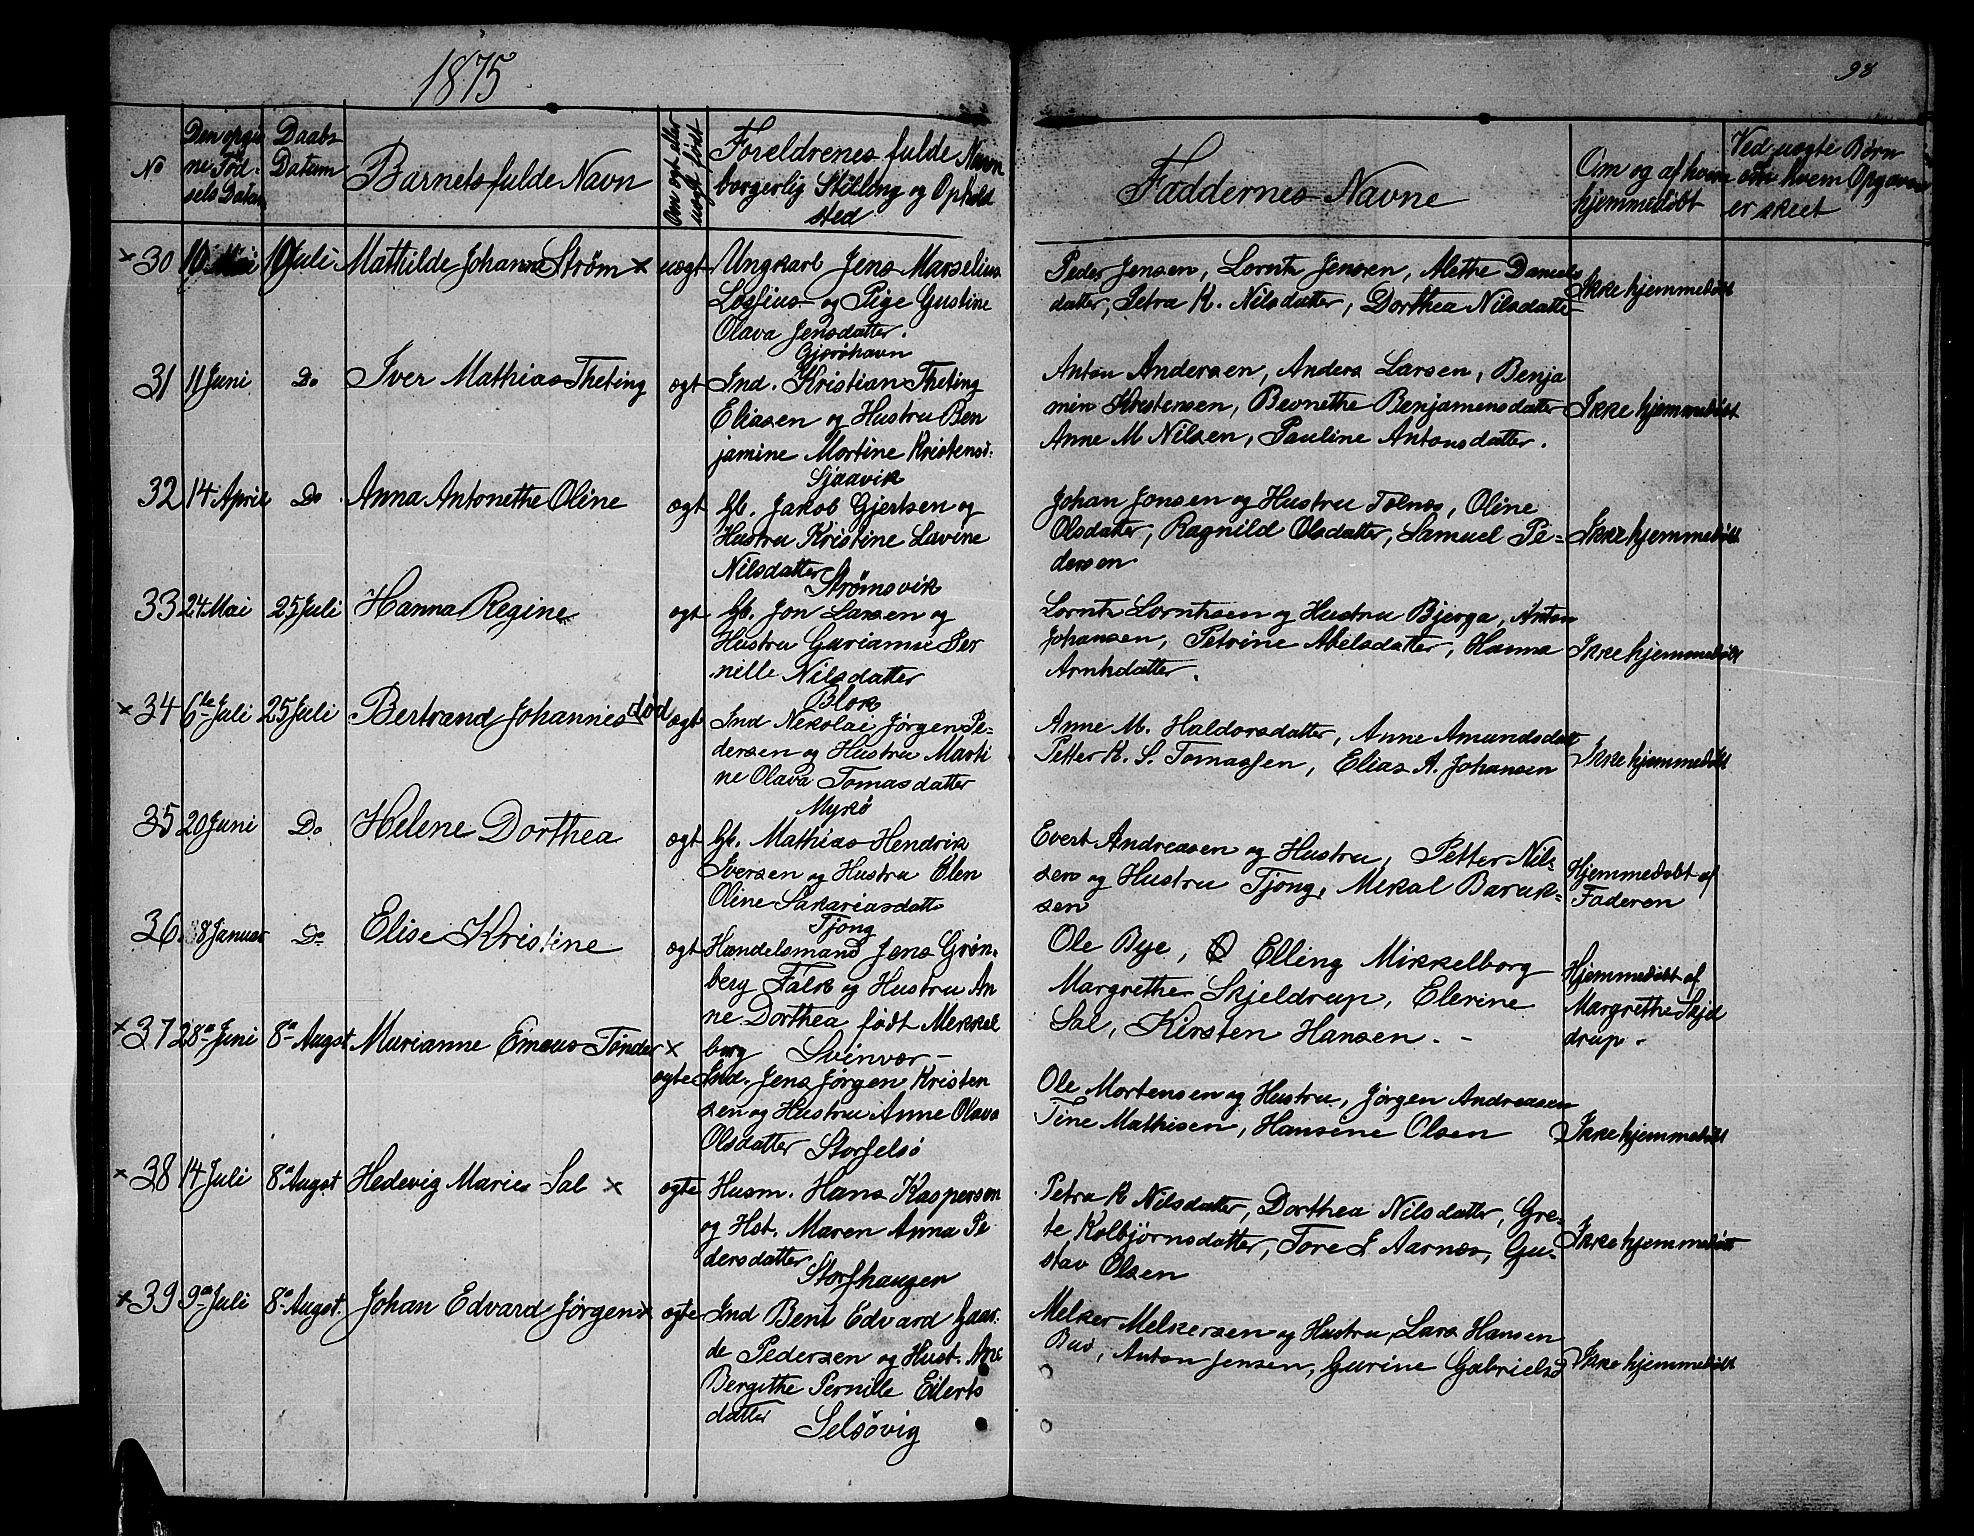 1875
98
No
Den opgiv
ne Fød-
sels Datum
Daabs
Datum
Barnets fulde Navn
Om ægt eller
uægt født
Foreldrenes fulde Navn
borgerlig Stilling og Opholds
sted
Faddernes Navne
Om og af hvem
hjemmedöbt
Ved uægte Børn
om hvem Opgaven
er skeet
×30 10 Mai 10 Juli Mathilde Johanna Strøm × uægt Ungkarl Jens Marselius
Lossius og Pige Gustine
Olava Jensdatter.
Gjerøhavn
Peder Jensen, Lornts Jensen, Methe Daniels
datter, Petra K. Nilsdatter, Dorthea Nilsdatte
Ikke hjemmedöbt
31 11 Juni Do Iver Mathias Theting ægt Ind. Kristian Theting
Eliasen og Hustru Ben
jamine Mortine Kristensd.
Sjaavik
Anton Andersen, Anders Larsen, Benja
min Kristensen, Bevnethe Benjamensdatter
Anne M Nilsen, Pauline Antonsdatter.
Ikke hjemmedöbt
32 14 April Do Anna Antonethe Oline ægt Gb. Jakob Gjertsen og
Hustru Kristine Lavine
Nilsdatter
Strømsvik
Johan Jonsen og Hustru Tolnes, Oline
Olsdatter, Ragnild Olsdatter, Samuel Pe=
dersen
Ikke hjemmedöbt
33 24 Mai 25 Juli Hanna Regine ægt Gb. Jon Larsen og
Hustru Gurianne Per
nille Nilsdatter
Blok
Lornts Lorntsen og Hustru Bjerga, Anton
Johansen, Petrine Abelsdatter, Hanna
Arntsdatter.
Ikke hjemmedöbt
×34 6te Juli 25 Juli Bertrand Johannes død ægt Ind Nekolai Jørgen Pe=
dersen og Hustru Marti
ne Olava Tomasdatter
Mykø
Anne M. Haldorsdatter, Anne Amundsdatt
Petter K. S. Tomassen, Elias A. Johansen
Ikke hjemmedöbt
35 20 Juni Do Helene Dorthea ægt Gb. Mathias Hendrik
Iversen og Hustru Elen
Oline Sakariasdatte
Tjong
Evert Andreasen og Hustru, Petter Nil=
sen og Hustru Tjong, Mekal Baruk=
sen
Hjemmedöbt af
Faderen
36 8 Januar Do Elise Kristine ægt Handelsmand Jens Grøn-
berg Falk og Hustru An
ne Dorthea født Mekkel
borg Svinvær –
Ole Bye, Elling Mikkelborg
Margrethe Skjeldrup, Elerine
Sal, Kirsten Hansen. -
Hjemmedöbt af
Margrethe Skjel
drup.
×37 28de Juni 8de Augst Marianne Emeus Tønder × ægte Ind. Jens Jørgen Kristen
sen og Hustru Anne Olava
Olsdatter Storselsö
Ole Mortensen og Hustru, Jørgen Andreasen
Tine Mathisen, Hansine Olsen
Ikke hjemmedöbt
×38 14 Juli 8de Augst Hedevig Marie Sal × ægte Husm. Hans Kaspersen
og Hst. Maren Anna Pe
dersdatter
Storshaugen
Petra K Nilsdatter, Dorthea Nilsdatter, Gre-
te Kolbjørnsdatter, Tore J Aarnes, Gu-
stav Olsen
Ikke hjemmedöbt
×39 9de Juli 8de Augst. Johan Edvard Jørgen × ægte Ind Bent Edvard Gaar.
de Pedersen og Hust. Ane
Bergithe Pernille Eilerts
datter
Selsøvig
Melker Melkersen og Hustru, Lars Hansen
Buø, Anton Jensen, Gurine Gabrielsd
Ikke hjemmedöbt